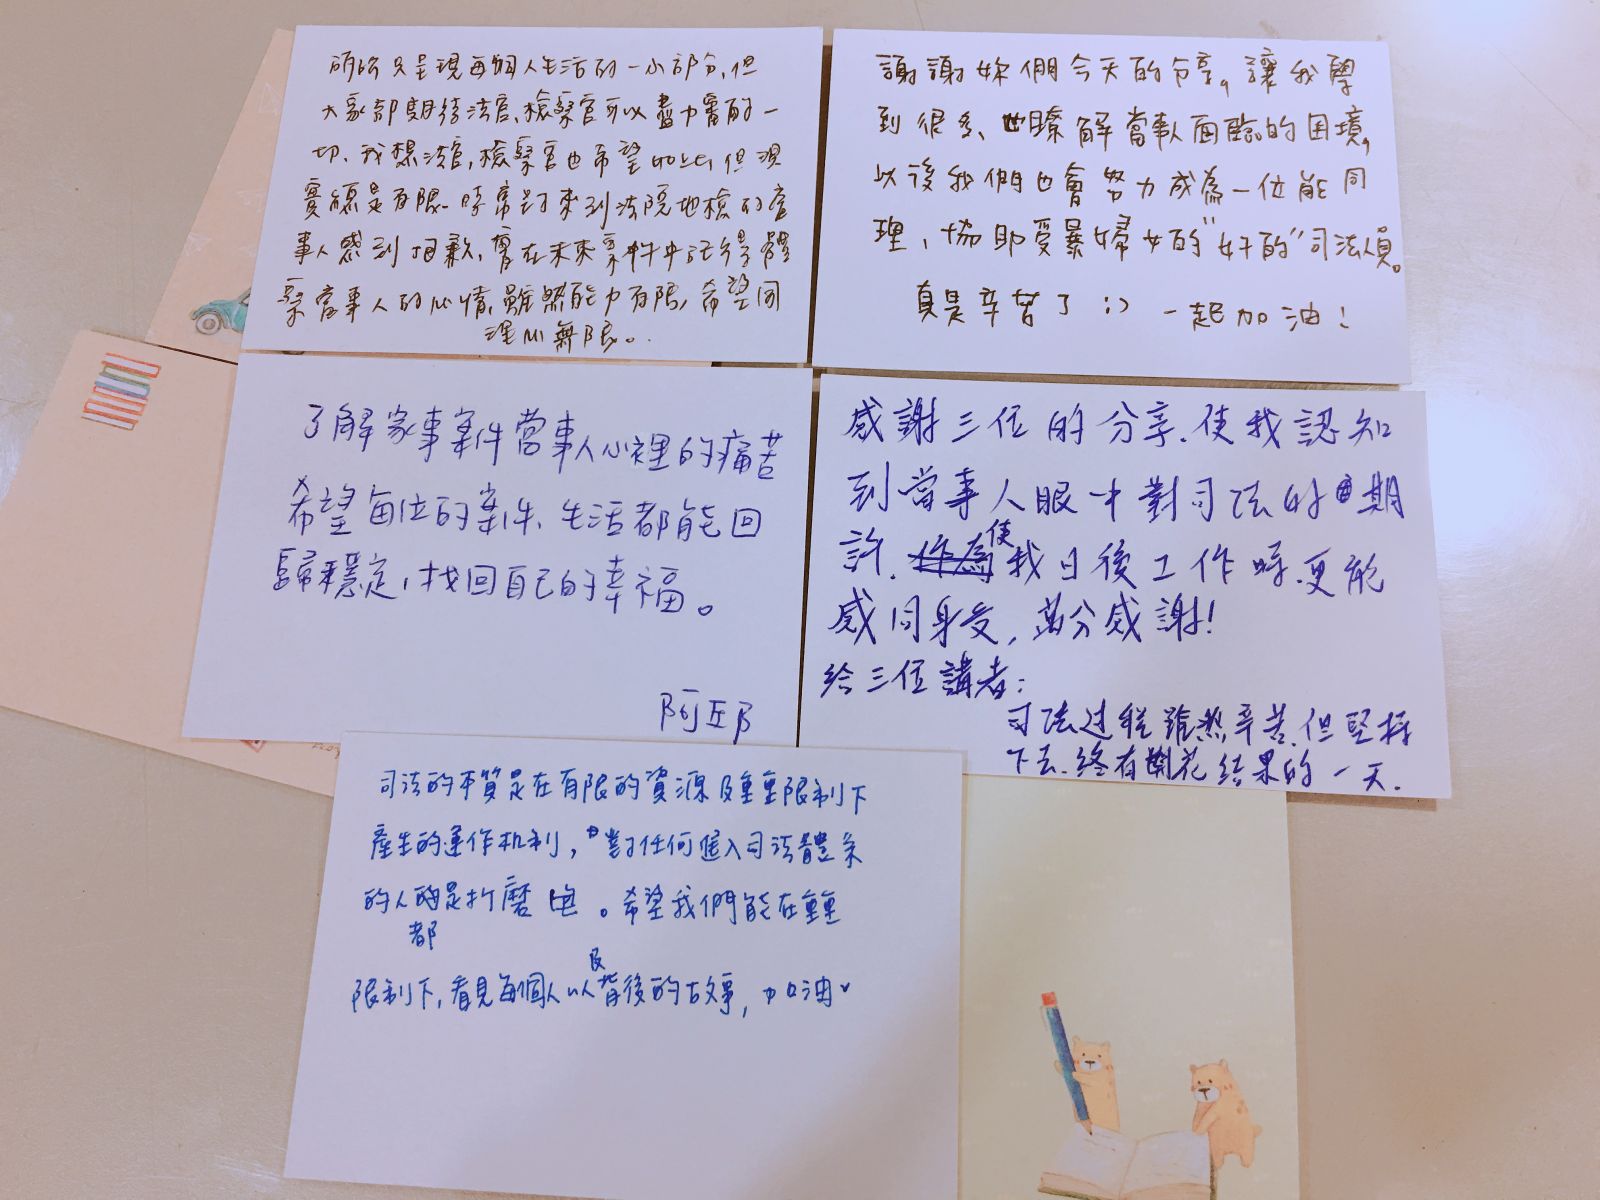 訴訟只呈現每個人生活的一小部分,但
大家都期待法官、檢察官可以盡力審酌一
切、我想法官,檢察官也希望如此,但現
實總是有限、時常對來到法院地檢的當
事人感到抱歉,會在未來案件中記得體
察當事人的心情,雖然能力有限,希望同
理心無限。
謝謝妳們今天的分享,讓我學
到很多、也瞭解當事人面臨的困境,
以後我們也會努力成為一位能同
理、協助受暴婦女的"好的"司法人員。
真是辛苦了 :) 一起加油!
了解家事案件當事人心裡的痛苦
希望每位的案件、生活都能回
歸穩定,找回自己的幸福。
阿邱
感謝三位的分享.使我認知
到當事人眼中對司法的期
許.使我日後工作時.更能
感同身受,萬分感謝!
給三位講者:
司法过程雖然辛苦.但堅持
下去.終有開花結果的一天.
司法的本質是在有限的資源及重重限制下
產生的運作机制,對任何進入司法體系
的人都是折磨。希望我們能在重重
限制下,看見每個人以及背後的故事,加油